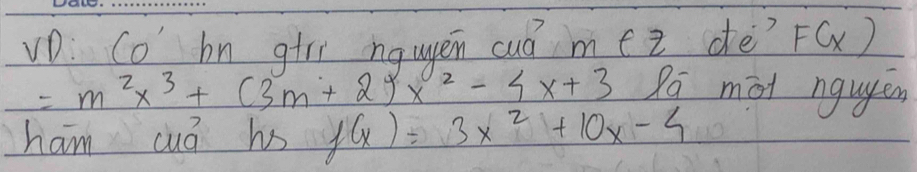 Date: ..................
VD: Có bn gtrị nguyên của m ∈ Z để F(x)
= m²x³ + (3m + 2)x² - 4x + 3 là một nguyên
hàm của hs f(x) = 3x² + 10x - 4